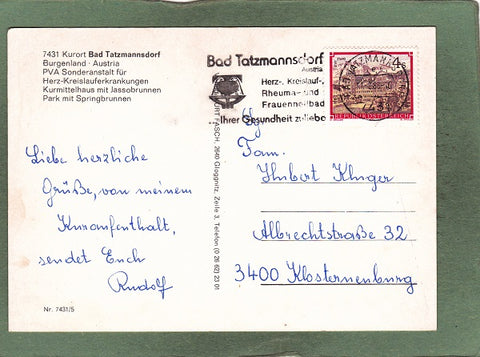 7431 Kurort Bad Tatzmannsdorf
Burgenland · Austria
PVA Sonderanstalt für
Herz-Kreislauferkrankungen
Kurmittelhaus mit Jassobrunnen
Park mit Springbrunnen
Liebe herzliche
Grüße, von meinem
Kuraufenthalt,
sendet Euch
Rudolf
Nr. 7431/5
KURT FASCH, 2640 Gloggnitz, Zeile 3, Telefon (0 26 62) 23 01
Bad Tatzmannsdorf
Austria
Herz-, Kreislauf-,
Rheuma- und
Frauenheilbad
Ihrer Gesundheit zuliebe
4
REPUBLIK ÖSTERREICH
Fam.
Hubert Kluger
Albrechtstraße 32
3400 Klosterneuburg